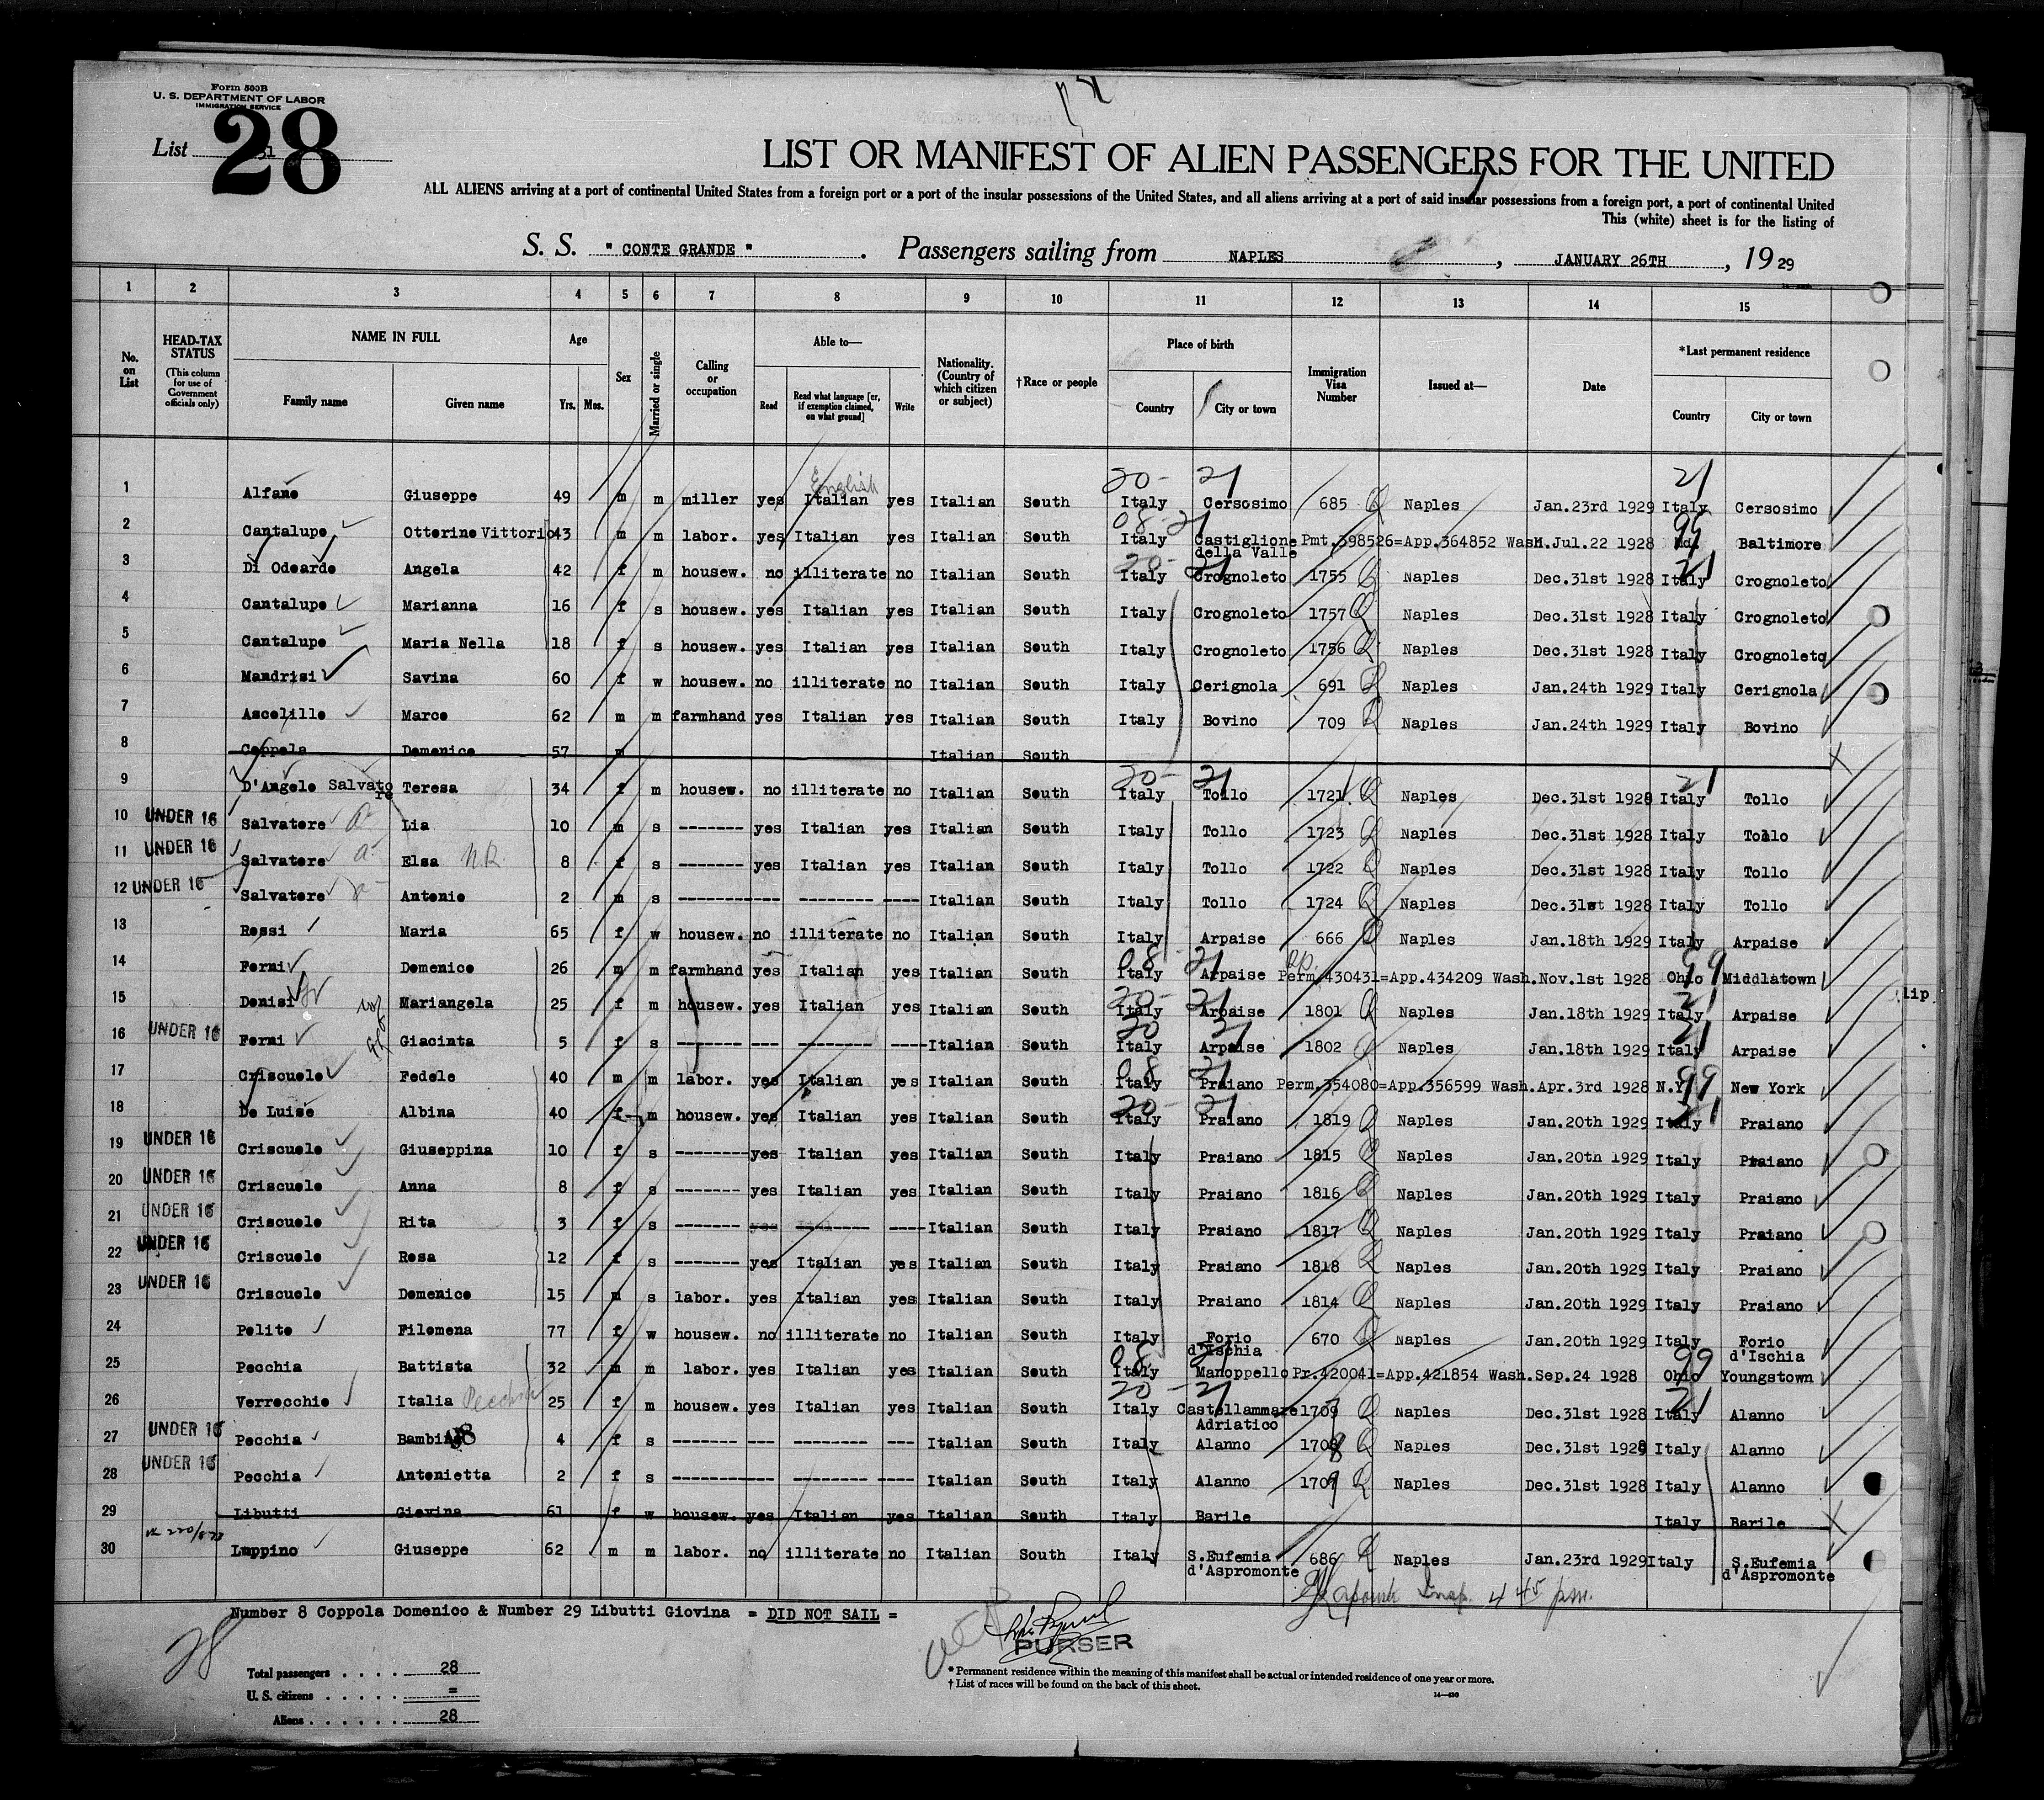 Form 500B
U. S. DEPARTMENT OF LABOR
IMMIGRATION SERVICE
List 28
LIST OR MANIFEST OF ALIEN PASSENGERS FOR THE UNITED
ALL ALIENS arriving at a port of continental United States from a foreign port or a port of the insular possessions of the United States, and all aliens arriving at a port of said insular possessions from a foreign port, a port of continental United
This (white) sheet is for the listing of
S. S. " CONTE GRANDE " . Passengers sailing from NAPLES , JANUARY 26TH , 19 29
1 2 3 4 5 6 7 8 9 10 11 12 13 14 15
No. on List
HEAD-TAX STATUS (This column for use of Government officials only)
NAME IN FULL
Family name Given name
Age
Yrs. Mos.
Sex
Married or single
Calling or occupation
Able to—
Read Read what language [or, if exemption claimed, on what ground] Write
Nationality. (Country of which citizen or subject)
†Race or people
Place of birth
Country City or town
Immigration Visa Number
Issued at—
Date
*Last permanent residence
Country City or town
English
20- 21 21
1 Alfano Giuseppe 49 m m miller yes Italian yes Italian South Italy Cersosimo 685 Naples Jan.23rd 1929 Italy Cersosimo
08-21 99
2 Cantalupo Otterino Vittorio 43 m m labor. yes Italian yes Italian South Italy Castiglione della Valle Pmt.398526=App.364852 Wash.Jul.22 1928 Md. Baltimore
20- 21 21
3 Di Odoardo Angela 42 f m housew. no illiterate no Italian South Italy Crognoleto 1755 Naples Dec.31st 1928 Italy Crognoleto
4 Cantalupo Marianna 16 f s housew. yes Italian yes Italian South Italy Crognoleto 1757 Naples Dec.31st 1928 Italy Crognoleto
5 Cantalupo Maria Nella 18 f s housew. yes Italian yes Italian South Italy Crognoleto 1756 Naples Dec.31st 1928 Italy Crognoleto
6 Mandrisi Savina 60 f w housew. no illiterate no Italian South Italy Cerignola 691 Naples Jan.24th 1929 Italy Cerignola
7 Ascolillo Marco 62 m m farmhand yes Italian yes Italian South Italy Bovino 709 Naples Jan.24th 1929 Italy Bovino
8 Coppola Domenico 57 m Italian South
20- 21 21
9 D'Angelo Salvatore Teresa 34 f m housew. no illiterate no Italian South Italy Tollo 1721 Naples Dec.31st 1928 Italy Tollo
10 UNDER 16 Salvatore Lia 10 m s ------- yes Italian yes Italian South Italy Tollo 1723 Naples Dec.31st 1928 Italy Tollo
11 UNDER 16 Salvatore Elsa N.R. 8 f s ------- yes Italian yes Italian South Italy Tollo 1722 Naples Dec.31st 1928 Italy Tollo
12 UNDER 16 Salvatore Antonio 2 m s ----------- -------- ---- Italian South Italy Tollo 1724 Naples Dec.31st 1928 Italy Tollo
13 Rossi Maria 65 f w housew. no illiterate no Italian South Italy Arpaise 666 Naples Jan.18th 1929 Italy Arpaise
08- 21 99
14 Forni Domenico 26 m m farmhand yes Italian yes Italian South Italy Arpaise Perm.430431=App.434209 Wash.Nov.1st 1928 Ohio Middlatown
20- 21 21
15 Denisi Mariangela 25 f m housew. yes Italian yes Italian South Italy Arpaise 1801 Naples Jan.18th 1929 Italy Arpaise
20 21 21
16 UNDER 16 Forni Giacinta 5 f s -------- --- -------- ---- Italian South Italy Arpaise 1802 Naples Jan.18th 1929 Italy Arpaise
08 21 99
17 Criscuolo Fedele 40 m m labor. yes Italian yes Italian South Italy Praiano Perm.354080=App.356599 Wash.Apr.3rd 1928 N.Y. New York
20- 21 21
18 De Luise Albina 40 f m housew. yes Italian yes Italian South Italy Praiano 1819 Naples Jan.20th 1929 Italy Praiano
19 UNDER 16 Criscuolo Giuseppina 10 f s -------- yes Italian yes Italian South Italy Praiano 1815 Naples Jan.20th 1929 Italy Praiano
20 UNDER 16 Criscuolo Anna 8 f s ------- yes Italian yes Italian South Italy Praiano 1816 Naples Jan.20th 1929 Italy Praiano
21 UNDER 16 Criscuolo Rita 3 f s ------- yes -------- ---- Italian South Italy Praiano 1817 Naples Jan.20th 1929 Italy Praiano
22 UNDER 16 Criscuolo Rosa 12 f s ------- yes Italian yes Italian South Italy Praiano 1818 Naples Jan.20th 1929 Italy Praiano
23 UNDER 16 Criscuolo Domenico 15 m s labor. yes Italian yes Italian South Italy Praiano 1814 Naples Jan.20th 1929 Italy Praiano
24 Polito Filomena 77 f w housew. no illiterate no Italian South Italy Forio d'Ischia 670 Naples Jan.20th 1929 Italy Forio d'Ischia
08 21 99
25 Pecchia Battista 32 m m labor. yes Italian yes Italian South Italy Manoppello Pr.420041=App.421854 Wash.Sep.24 1928 Ohio Youngstown
20 - 21 21
26 Verrocchio Italia Pecchia 25 f m housew. yes Italian yes Italian South Italy Castellammare Adriatico 1709 Naples Dec.31st 1928 Italy Alanno
27 UNDER 16 Pecchia Bambina 4 f s ------- --- -------- --- Italian South Italy Alanno 1708 Naples Dec.31st 1928 Italy Alanno
28 UNDER 16 Pecchia Antonietta 2 f s ----------- -------- ---- Italian South Italy Alanno 1707 Naples Dec.31st 1928 Italy Alanno
29 Libutti Giovina 61 f w housew. yes Italian yes Italian South Italy Barile Italy Barile
30 Luppino Giuseppe 62 m m labor. no illiterate no Italian South Italy S.Eufemia d'Aspromonte 686 Naples Jan.23rd 1929 Italy S.Eufemia d'Aspromonte
Insp. 4 45 pm.
Number 8 Coppola Domenico & Number 29 Libutti Giovina = DID NOT SAIL =
28
PURSER
Total passengers . . . . 28
U. S. citizens . . . . . =
Aliens . . . . . . 28
* Permanent residence within the meaning of this manifest shall be actual or intended residence of one year or more.
† List of races will be found on the back of this sheet.
lip